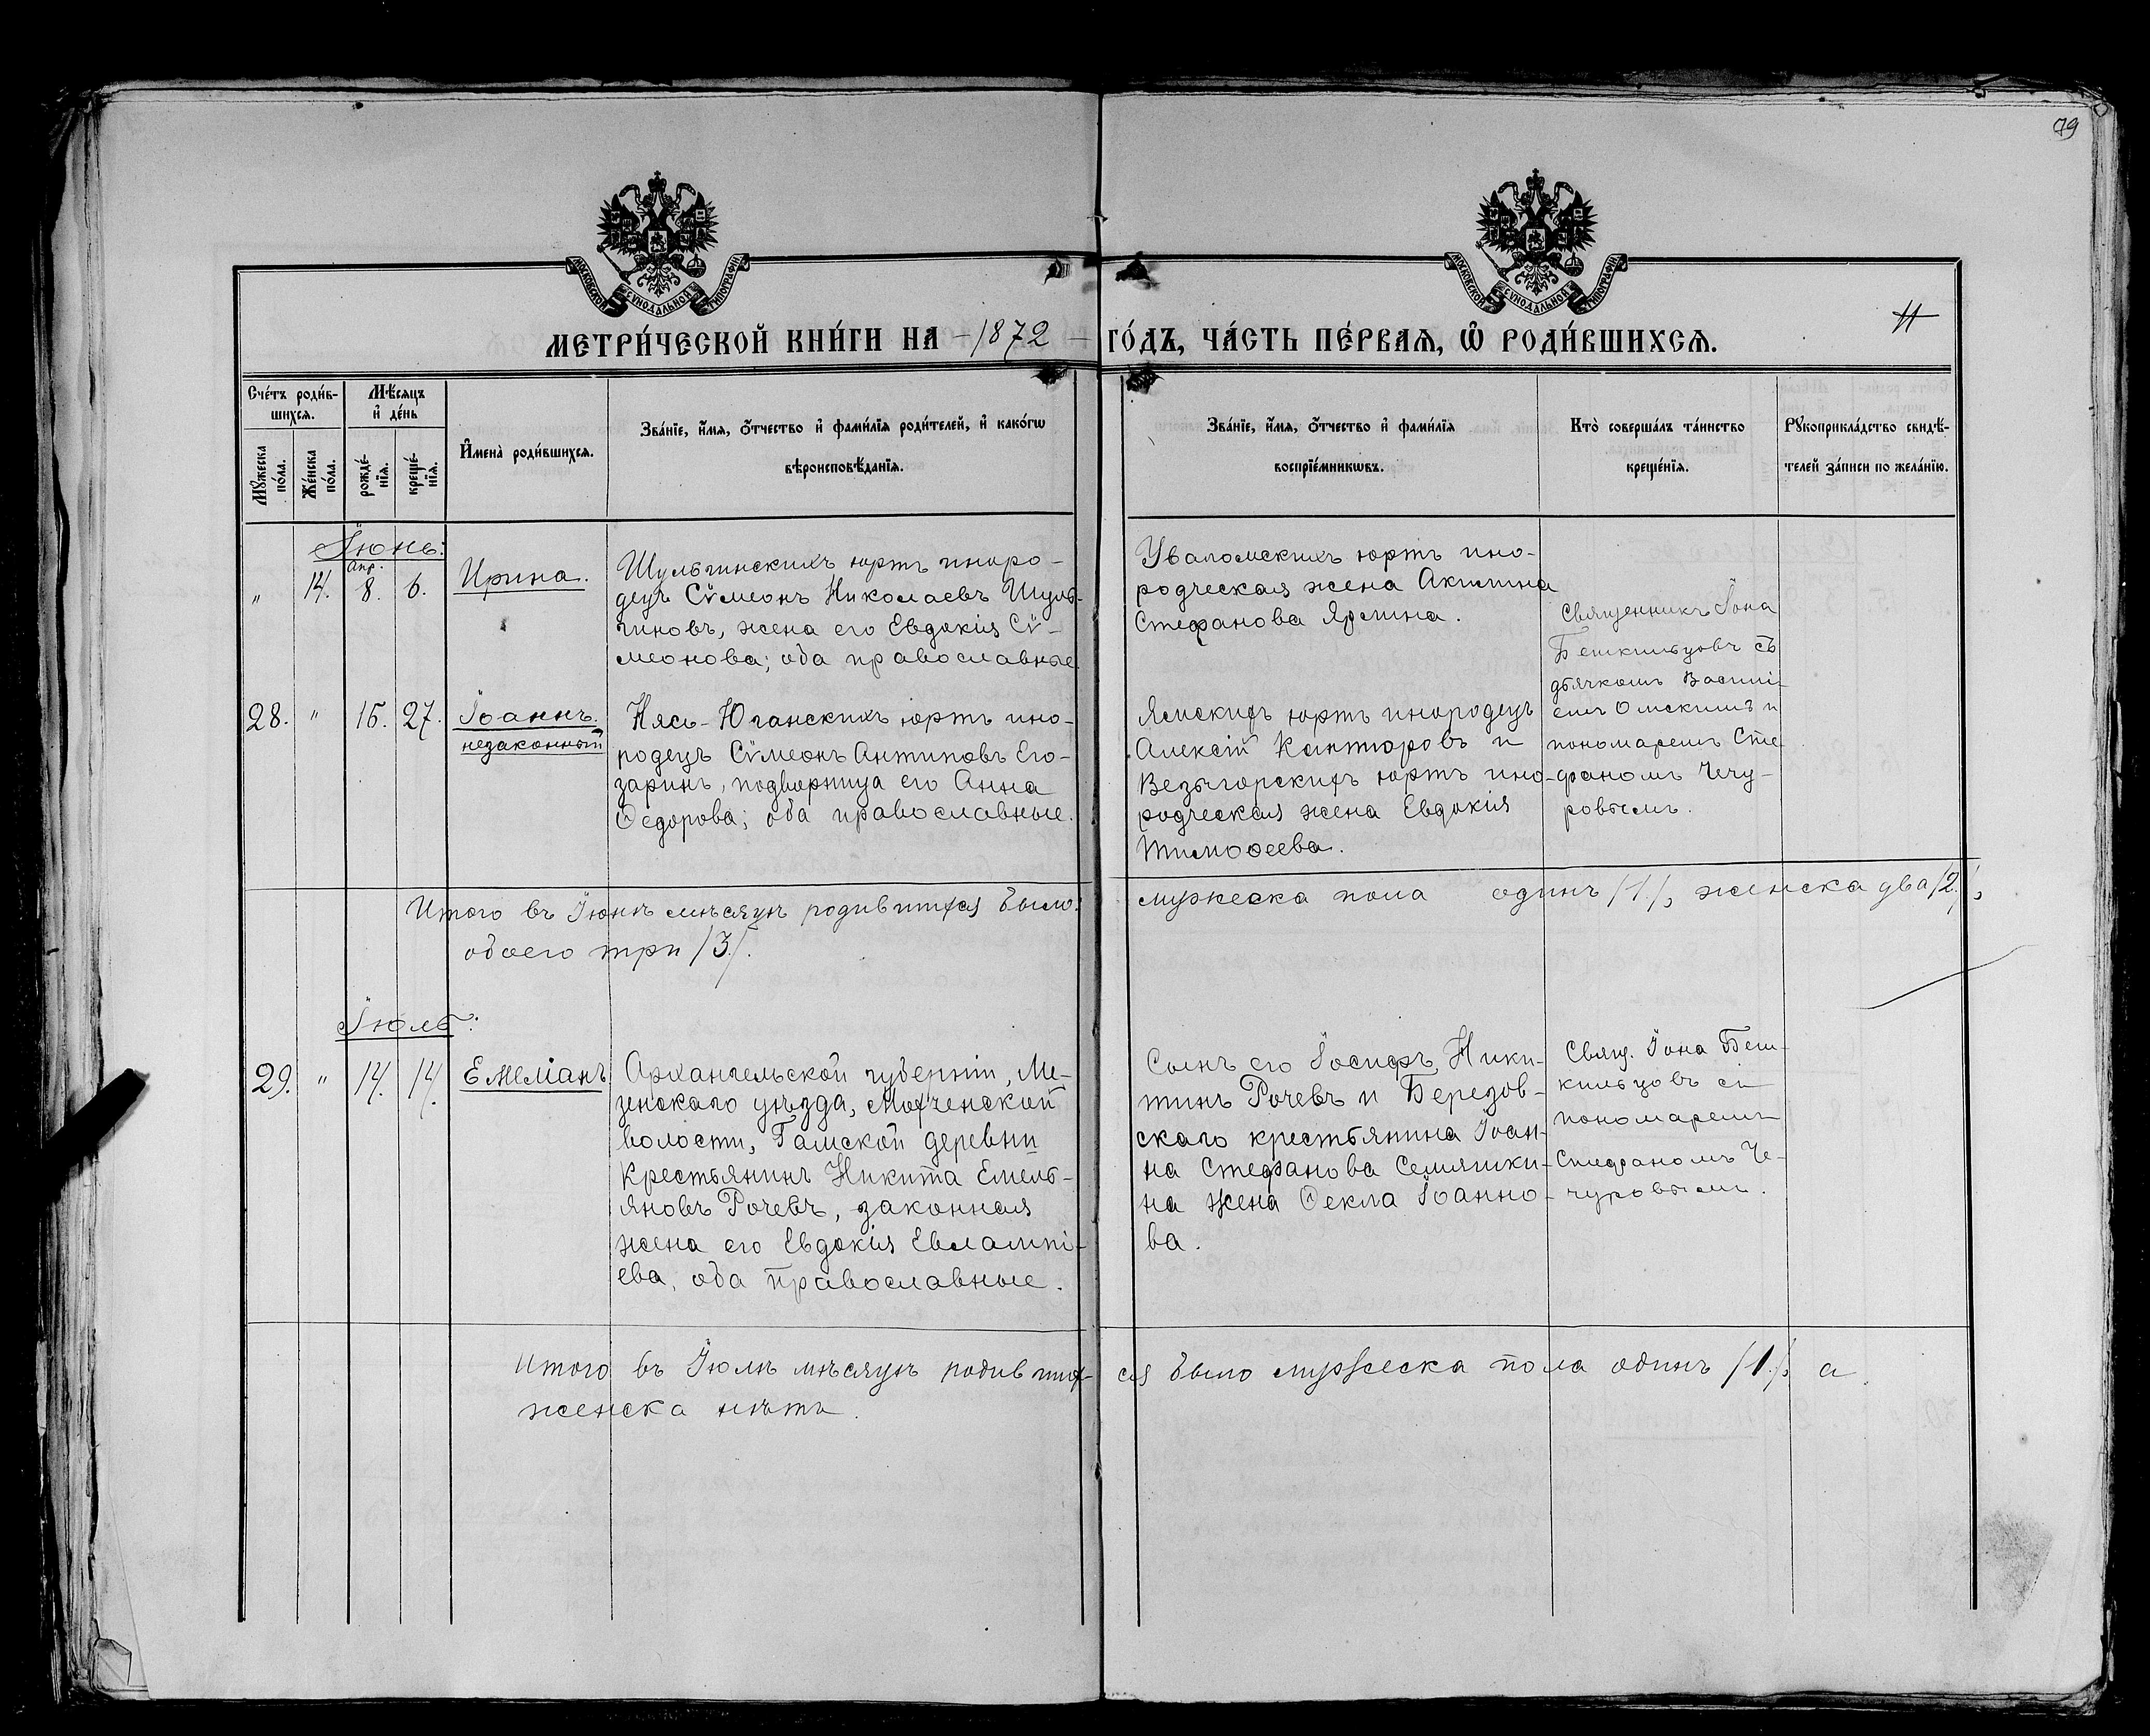 79
МОСКОВСКОЙ СѴНОДАЛЬНОЙ ТИПОГРАФІИ
МОСКОВСКОЙ СѴНОДАЛЬНОЙ ТИПОГРАФІИ
11
МЕТРИ́ЧЕСКОЙ КНИ́ГИ НА -1872- ГО́ДЪ, ЧА́СТЬ ПЕ́РВАѦ, Ѡ҆ РОДИ́ВШИХСѦ.
Сче́тъ роди́в-
шихсѧ.
Мѣ́сѧцъ
и҆ де́нь
Мꙋ́жеска
по́ла.
Же́нска
по́ла.
рожде́-
нїѧ.
креще́-
нїѧ.
И҆мена̀ роди́вшихсѧ.
Зва́нїе, и҆́мѧ, ѻ҆́тчество и҆ фами́лїѧ роди́телей, и҆ како́гѡ
вѣроисповѣ́данїѧ.
Зва́нїе, и҆́мѧ, ѻ҆́тчество и҆ фами́лїѧ
воспрїе́мникѡвъ.
Кто̀ соверша́лъ та́инство
креще́нїѧ.
Рꙋкоприкла́дство свидѣ́-
телей за́писи по жела́нїю.
Іюнь:
Апр.
" 14. 8. 6. Ирина.
Шульгинскихъ юртъ иноро-
децъ Сѵмеонъ Николаевъ Шуль-
гиновъ, жена его Евдокія Сѵ-
меонова; оба православные
Уваломскихъ юртъ ино-
родческая жена Акилина
Стефанова Ярлина.
Священникъ Іона
Бешкильцовъ съ
дьячкомъ Васили-
емъ Омскимъ и
пономаремъ Сте-
фаномъ Чечу-
ровымъ.
28. " 15. 27. Іоаннъ.
незаконный
Нясь-Юганскихъ юртъ ино-
родецъ Сѵмеонъ Антиповъ Его-
заринъ, подворница его Анна
Ѳедорова; оба православные.
Ямскихъ юртъ инородецъ
Алексій Кантеровъ и
Везыгорскихъ юртъ ино-
родческая жена Евдокія
Тимоѳеева.
Итого въ Іюнѣ мѣсяцѣ родившихся было: мужеска пола одинъ /1/, женска два /2/,
обоего три /3/.
Іюль:
29. " 14. 14. Емеліанъ
Архангельской губерніи, Ме-
зенскаго уѣзда, Мохченской
волости, Гамской деревни
крестьянинъ Никита Емель-
яновъ Рочевъ, законная
жена его Евдокія Евлампі-
ева, оба православные.
Сынъ его Іосифъ Ники-
тинъ Рочевъ и Березов-
скаго крестьянина Іоан-
на Стефанова Семяшки-
на жена Ѳекла Іоанно-
ва.
Свящ. Іона Беш-
кильцовъ съ
пономаремъ
Стефаномъ Че-
чуровымъ.
Итого въ Іюлѣ мѣсяцѣ родивших- ся было мужеска пола одинъ /1/, а
женска нѣтъ.